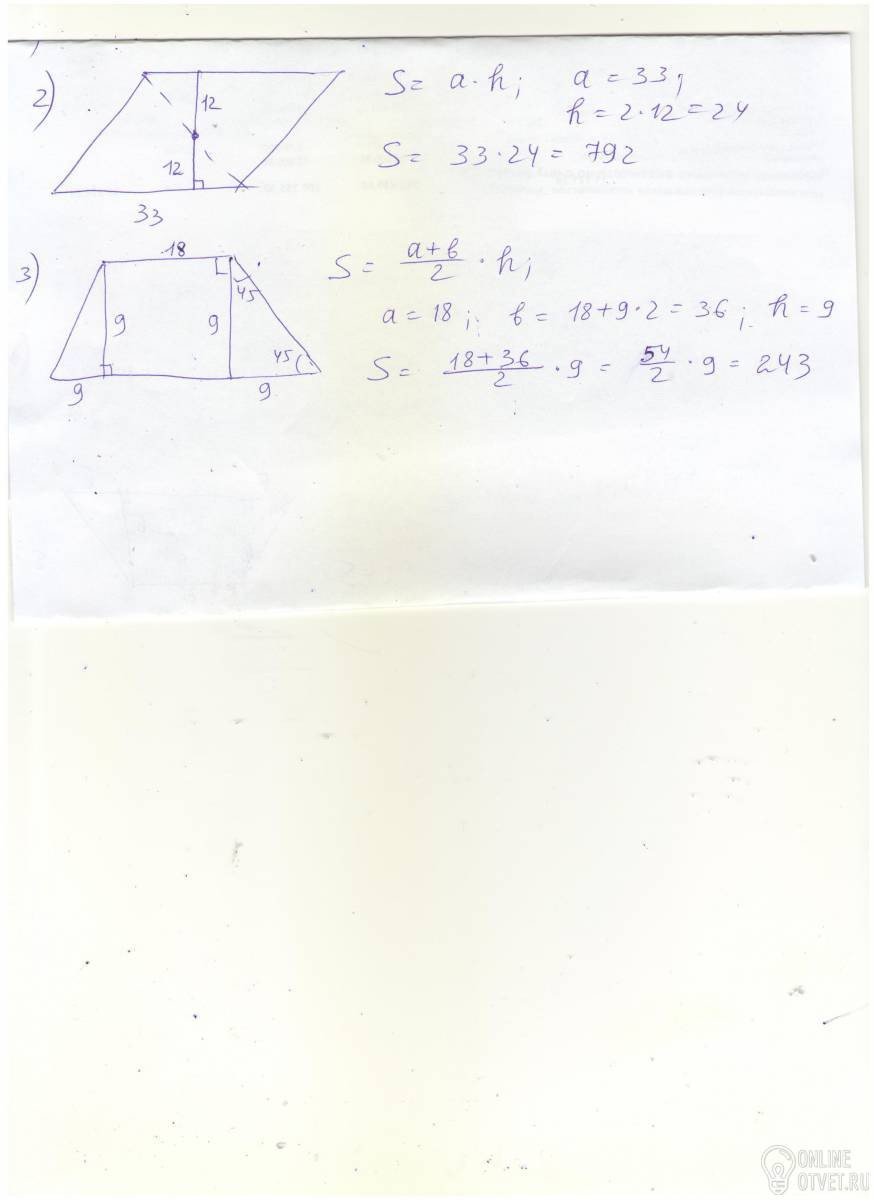 2)
12
12
33
S = a · h; a = 33;
h = 2·12 = 24
S = 33·24 = 792
3)
18
9
9
45
45
9
9
S = (a+b)/2 · h;
a = 18; b = 18+9·2 = 36; h = 9
S = (18+36)/2 · 9 = 54/2 · 9 = 243
ONLINE
OTVET.RU